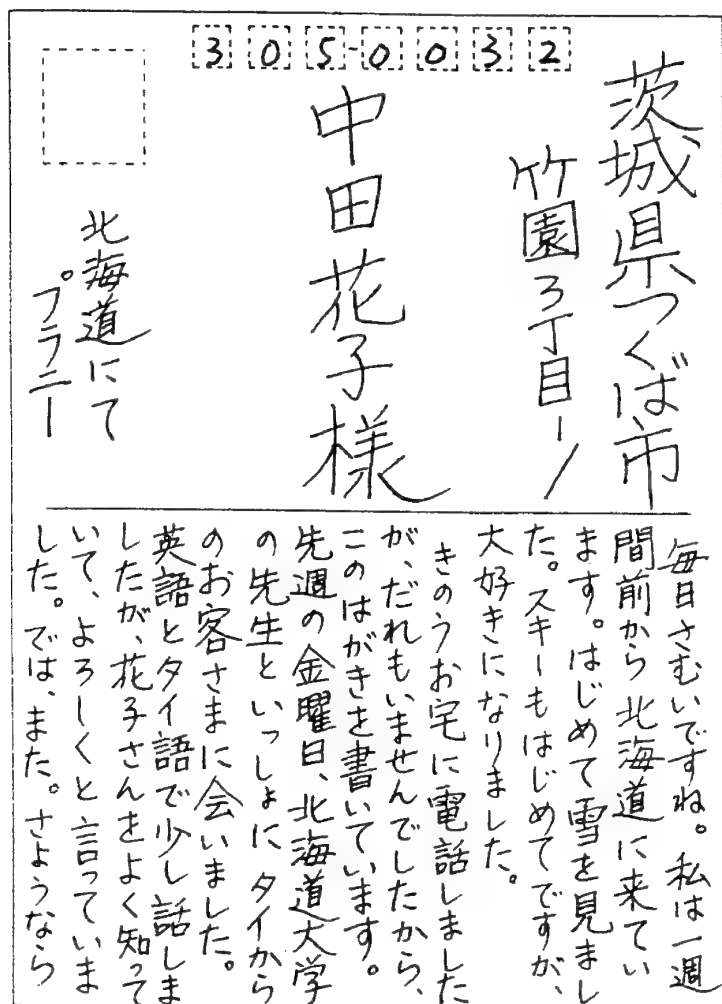 305-0032
茨城県つくば市
竹園3丁目ー1
中田花子様
北海道にて
プラニー
毎日さむいですね。私は一週
間前から北海道に来てい
ます。はじめて雪を見まし
た。スキーもはじめてですが、
大好きになりました。
きのうお宅に電話しました
が、だれもいませんでしたから、
このはがきを書いています。
先週の金曜日、北海道大学
の先生といっしょにタイから
のお客さまに会いました。
英語とタイ語で少し話しま
したが、花子さんをよく知って
いて、よろしくと言っていま
した。では、また。さようなら